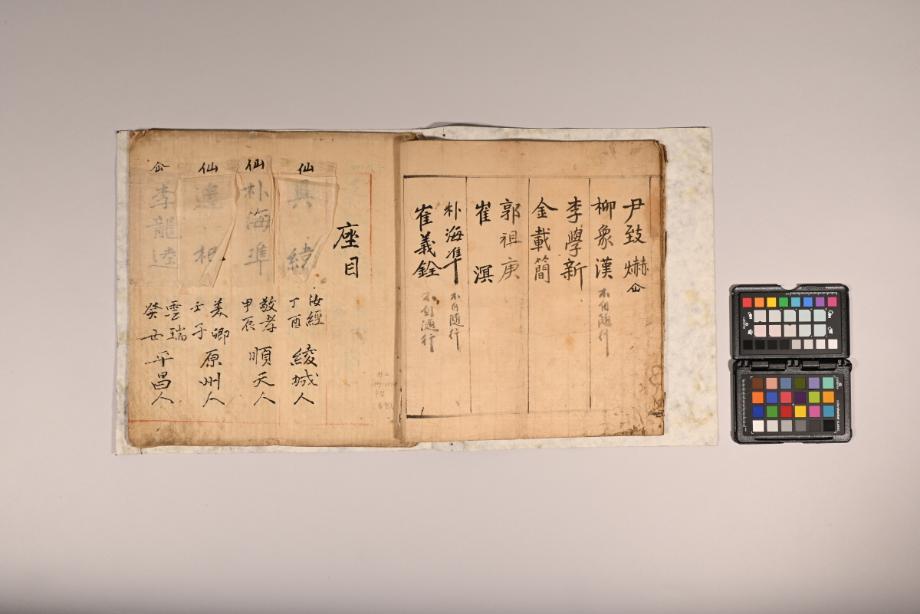 尹致爀 仚
柳象漢 不有隨行
李學新
金載簡
郭祖庚
崔溟
朴海準 不有隨行
崔義銓 不有隨行
座目
仙 具緯 汝經 丁酉 綾城人
仙 朴海準 敬孝 甲辰 順天人
仙 邊相 美卿 壬子 原州人
仚 李龍逵 雲瑞 癸丑 平昌人